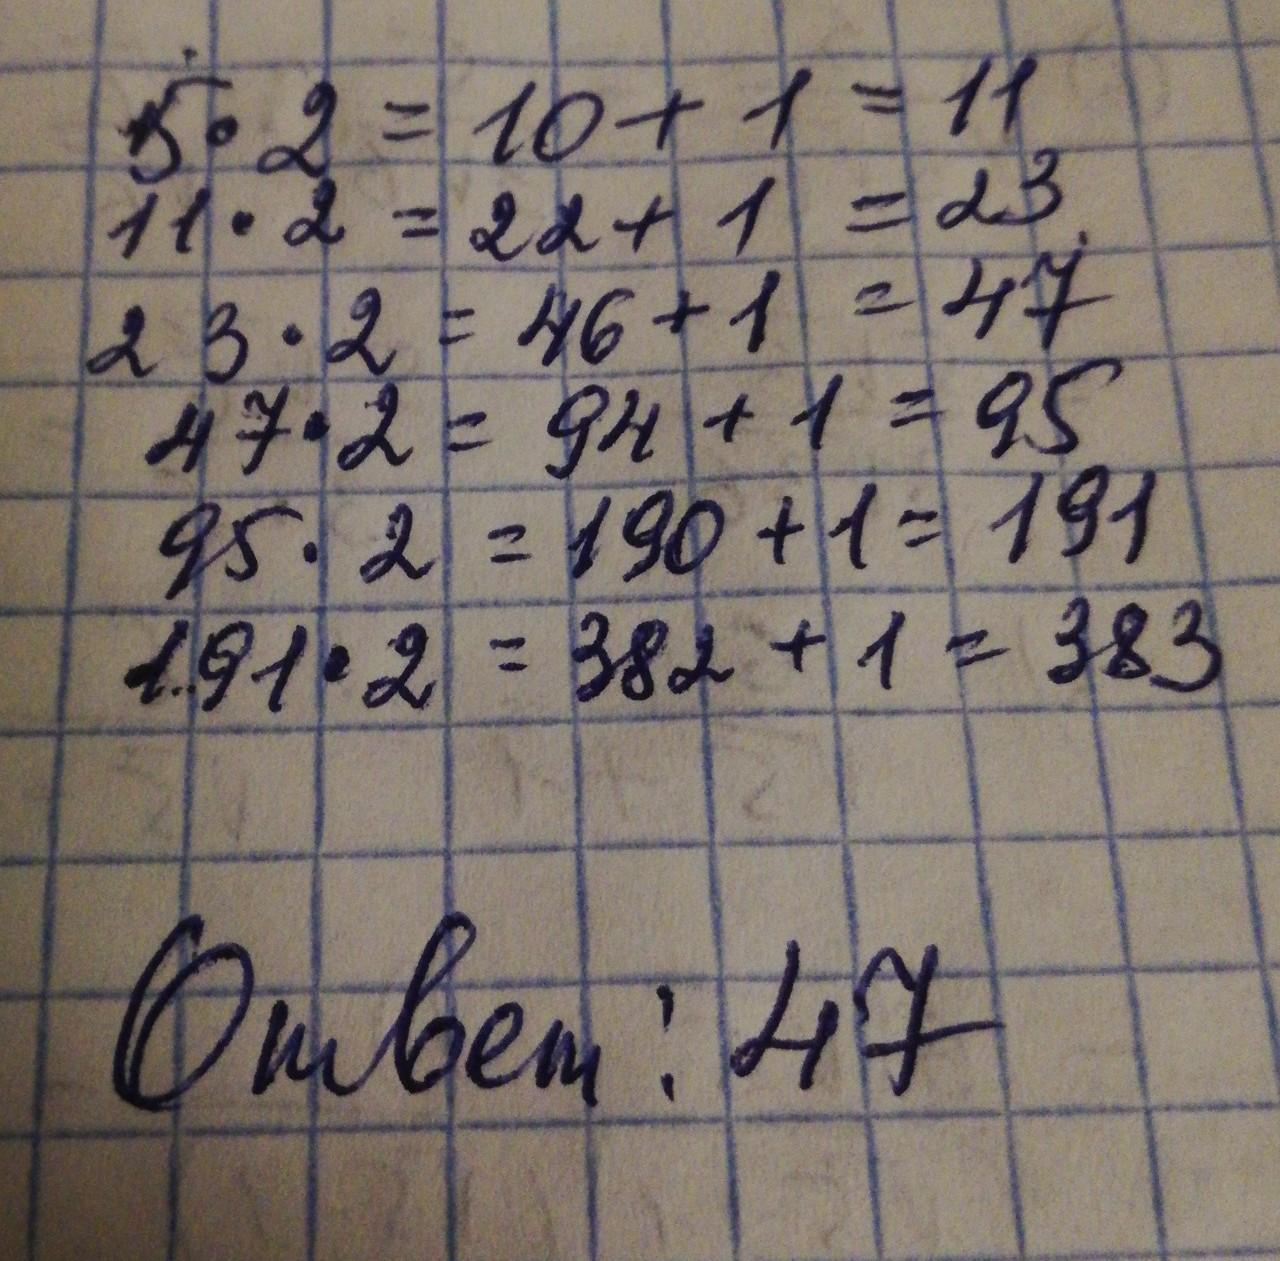 5 · 2 = 10 + 1 = 11
11 · 2 = 22 + 1 = 23
23 · 2 = 46 + 1 = 47
47 · 2 = 94 + 1 = 95
95 · 2 = 190 + 1 = 191
191 · 2 = 382 + 1 = 383
Ответ: 47